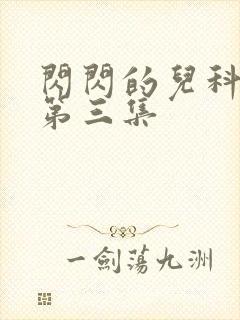 閃閃的兒科
第三集
一劍蕩九洲